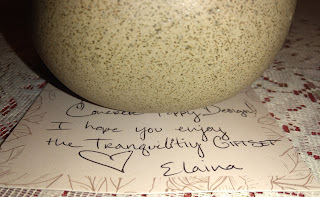 Poppy Designs!
I hope you enjoy
the Tranquilitiy GIFTSET
Elaina